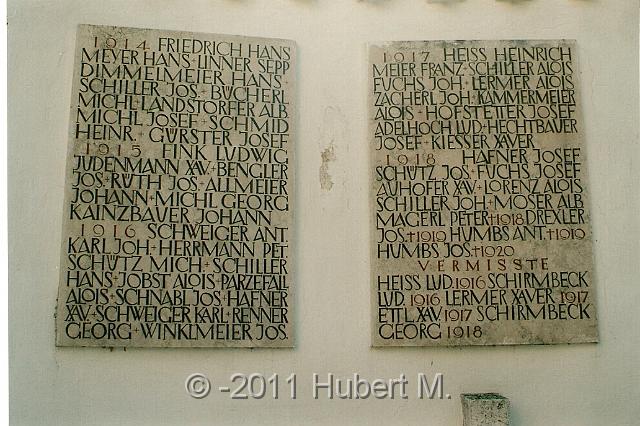 1914 FRIEDRICH HANS
MEYER HANS + LINNER SEPP
DIMMELMEIER HANS +
SCHILLER JOS + BÜCHERL
MICHL + LANDSTORFER ALB
MICHL JOSEF + SCHMID
HEINR + GÜRSTER JOSEF
1915 FINK LUDWIG
JUDENMANN XAV + BENGLER
JOS + RÜTH JOS + ALLMEIER
JOHANN + MICHL GEORG
KAINZBAUER JOHANN
1916 SCHWEIGER ANT
KARL JOH + HERRMANN PET
SCHÜTZ MICH + SCHILLER
HANS + JOBST ALOIS + PARZEFALL
ALOIS + SCHNABL JOS + HAFNER
XAV + SCHWEIGER KARL + RENNER
GEORG + WINKLMEIER JOS.
1917 HEISS HEINRICH
MEIER FRANZ + SCHILLER ALOIS
FUCHS JOH + LERMER ALOIS
ZACHERL JOH + KAMMERMEIER
ALOIS + HOFSTETTER JOSEF
ADELHOCH LUD + HECHTBAUER
JOSEF + KIESSER XAVER
1918 HAFNER JOSEF
SCHÜTZ JOS + FUCHS JOSEF
AUHOFER XAV + LORENZ ALOIS
SCHILLER JOH + MOSER ALB
MAGERL PETER +1918 DREXLER
JOS +1919 HUMBS ANT. +1919
HUMBS JOS +1920
VERMISSTE
HEISS LUD. 1916 SCHIRMBECK
LUD. 1916 LERMER XAVER 1917
ETTL XAV. 1917 SCHIRMBECK
GEORG 1918
© -2011 Hubert M.